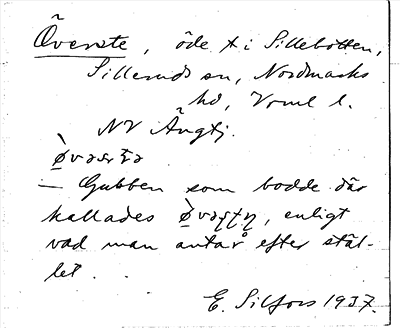 Överste, öde × i Sillebotten,
Sillerud sn, Nordmarks
hd, Vrml l.
NV Ängtj.
– Gubben som bodde där
kallades, enligt
vad man antar efter stäl-
let.
E. Silfors 1937.